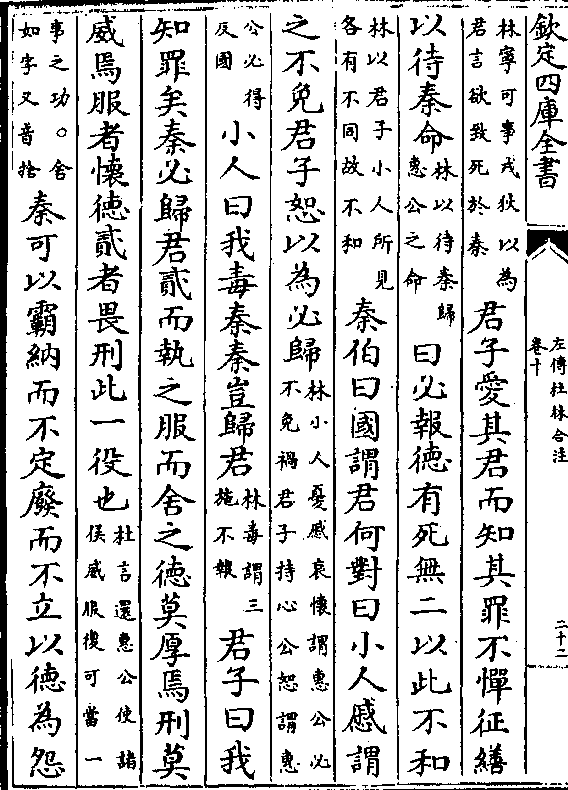 欽定四庫全書
左傳杜林合注
卷十
二十二
林寧可事戎狄以為
君言欲致死於秦
君子愛其君而知其罪不憚征繕
以待秦命
林以待秦歸
惠公之命
曰必報德有死無二以此不和
林以君子小人所見
各有不同故不和
秦伯曰國謂君何對曰小人慼謂
之不免君子恕以為必歸
林小人憂慼哀懷謂惠公必
不免禍君子持心公恕謂惠
公必得
反國
小人曰我毒秦秦豈歸君
林毒謂三
施不報
君子曰我
知罪矣秦必歸君貳而執之服而舍之德莫厚焉刑莫
威焉服者懷德貳者畏刑此一役也
杜言還惠公使諸
侯威服復可當一
事之功○舍
如字又音捨
秦可以霸納而不定廢而不立以德為怨